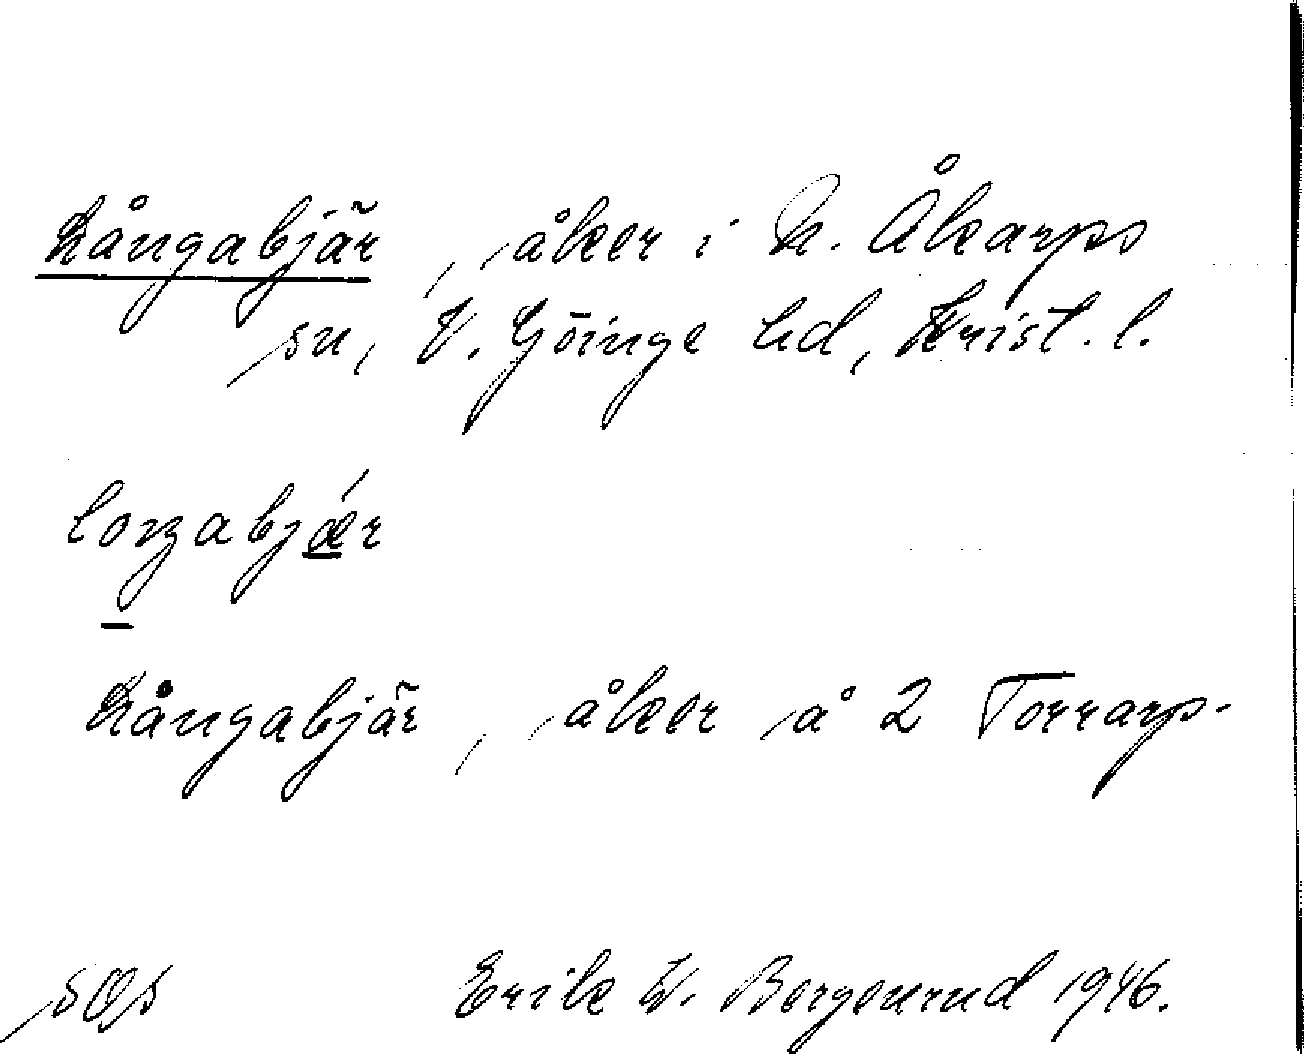 Långabjär, åker i N. Åkarps
sn, V. Göinge hd, Krist. l.
Långabjär, åker å 2 Torrarp.
Erik W. Bergenrud 1946.